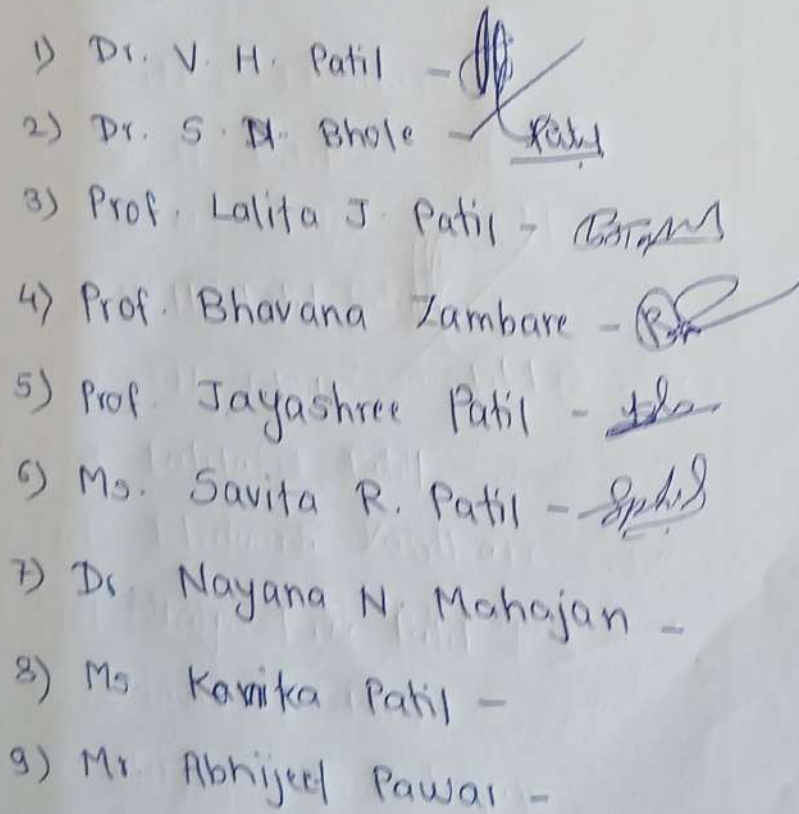 1) Dr. V. H. Patil -
2) Dr. S. Bhole -
3) Prof. Lalita J. Patil -
4) Prof. Bhavana Zambare -
5) Prof. Jayashree Patil -
6) Ms. Savita R. Patil -
7) Dr. Nayana N. Mahajan -
8) Ms Kavita Patil -
9) Mr. Abhijeet Pawar -